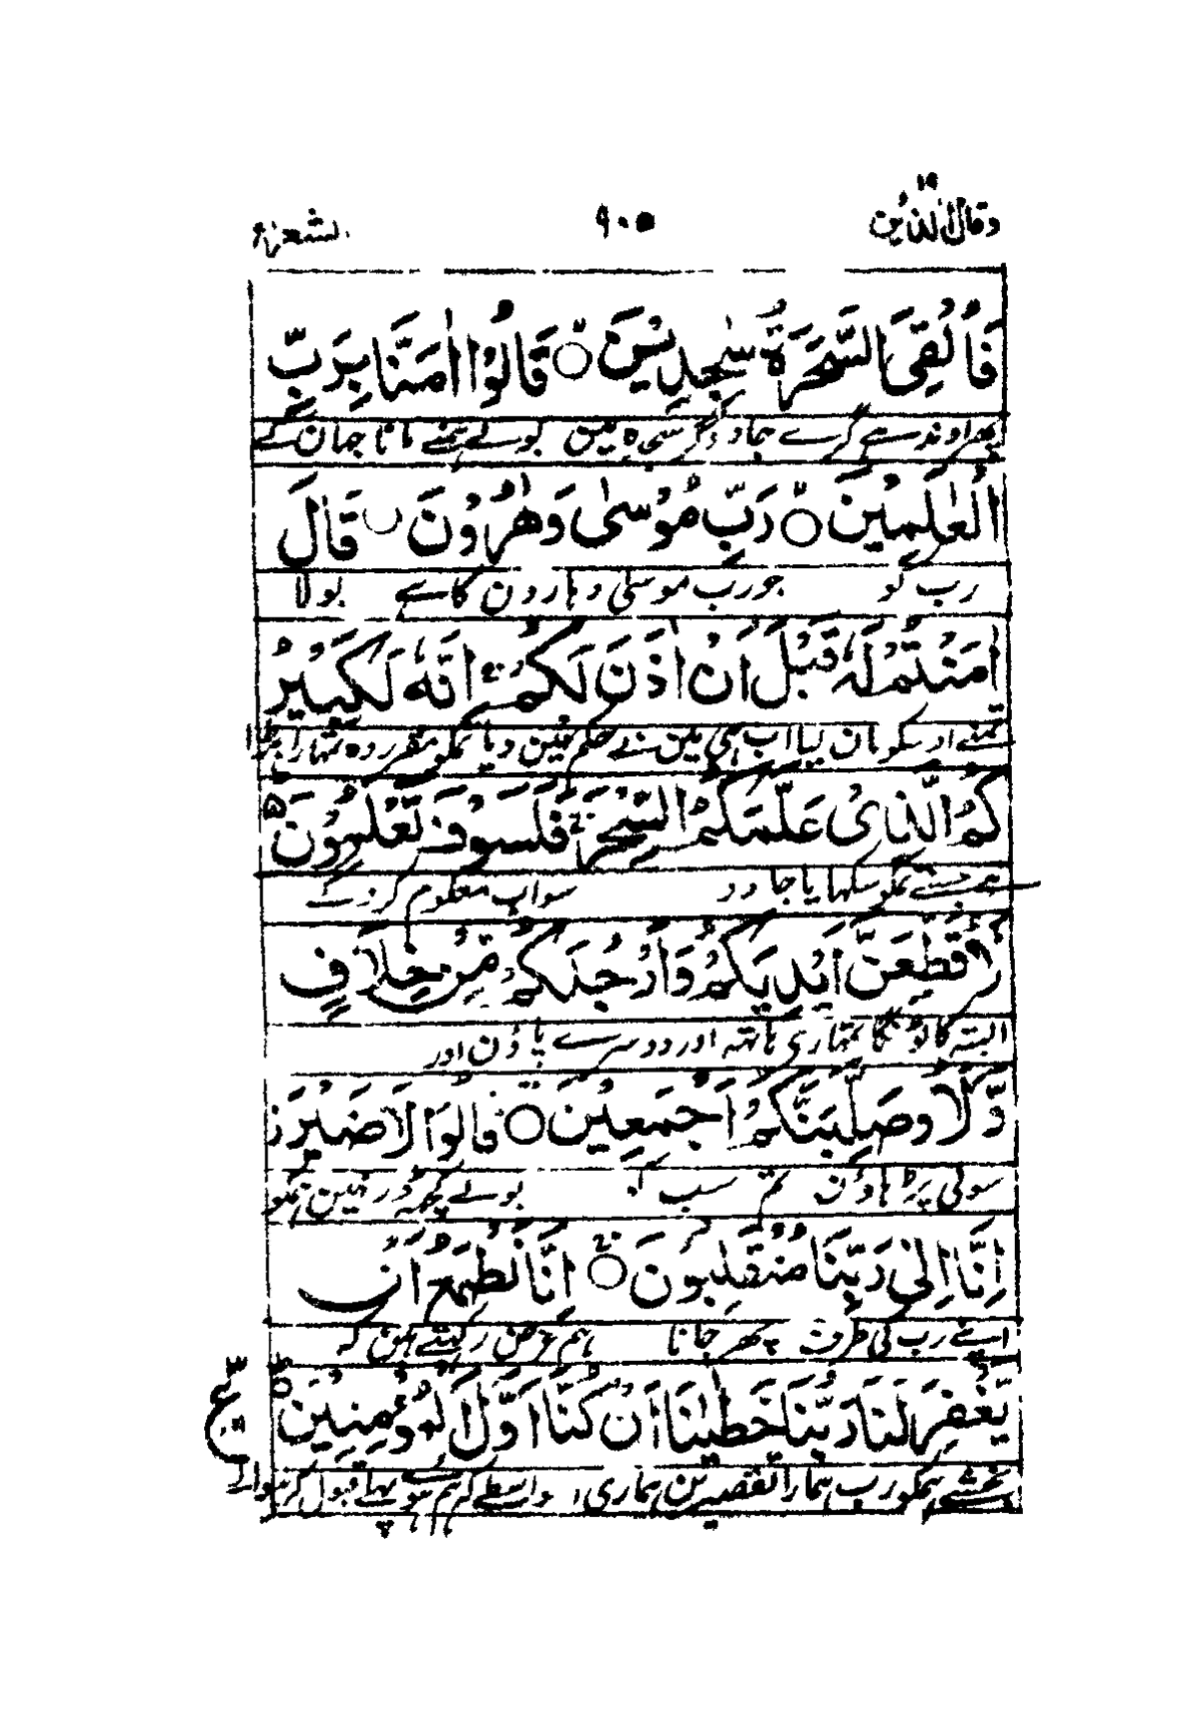 وقال الذین ۱۹ ۹۰۵ الشعراء
فَاُلْقِیَ السَّحَرَةُ سٰجِدِیْنَ ۝ قَالُوْۤا اٰمَنَّا بِرَبِّ
پھر اوندھے گرے جادوگر سجدہ مین بولے ہمنے مانا جہان کے
الْعٰلَمِیْنَ ۝ رَبِّ مُوْسٰی وَهٰرُوْنَ ۝ قَالَ
رب کو جو رب موسٰی وہارون کا ہے بولا
اٰمَنْتُمْ لَهٗ قَبْلَ اَنْ اٰذَنَ لَكُمْ ۚ اِنَّهٗ لَكَبِیْرُ
تمنے اوسکو مان لیا اب ہی مین نے حکم نہین دیا تمکو مقرر وہ تمہارا بڑا
كُمُ الَّذِیْ عَلَّمَكُمُ السِّحْرَ ۚ فَلَسَوْفَ تَعْلَمُوْنَ ۵
ہے جسنے تمکو سکہایا جادو سو اب معلوم کروگے
لَاُقَطِّعَنَّ اَیْدِیَكُمْ وَاَرْجُلَكُمْ مِّنْ خِلَافٍ
البتہ کاٹونگا تمہاری ہاتہہ اور دوسرے پاؤن اور
وَّلَاُوصَلِّبَنَّكُمْ اَجْمَعِیْنَ ۝ قَالُوْا لَا ضَیْرَ ز
سولی پر چڑہاؤن تم سب کو بولے کچھہ ڈر نہین ہمکو
اِنَّاۤ اِلٰی رَبِّنَا مُنْقَلِبُوْنَ ۝ اِنَّا نَطْمَعُ اَنْ
اپنے رب کی طرف پھر جانا ہم غرض رکہتے ہین کہ
یَّغْفِرَ لَنَا رَبُّنَا خَطٰیٰنَاۤ اَنْ كُنَّاۤ اَوَّلَ الْمُؤْمِنِیْنَ ۝ ع
بخشے ہمکو رب ہمارا تقصیرین ہماری اسواسطے کہ ہم ہوے پہلے قبول کرنیوالے